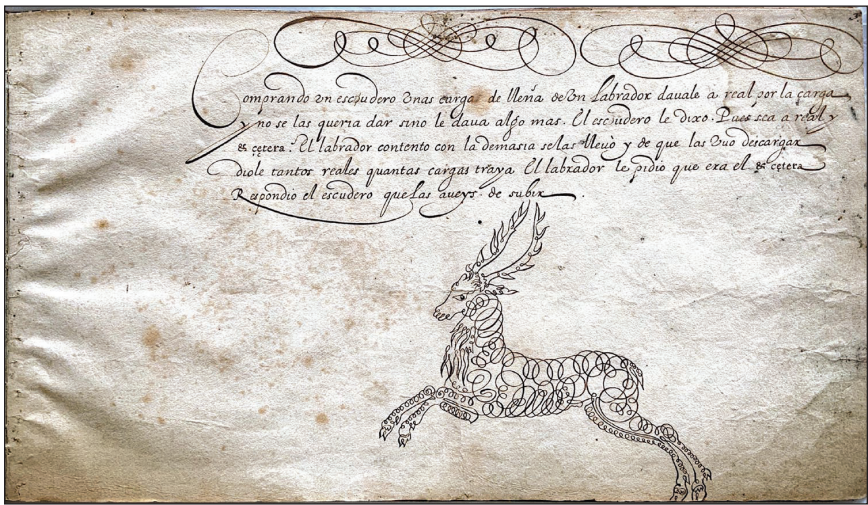 Comprando vn escudero vnas cargas de lleña de vn Labrador davale a real por la carga
y no se las queria dar sino le dava algo mas. El escudero le dixo. Pues sea a real y
&c çetera: El labrador contento con la demasia se las lleuò y de que las vuo descargar
diole tantos reales quantas cargas traya El labrador le pidio que era el &c çetera
Respondio el escudero que las aveys de subir